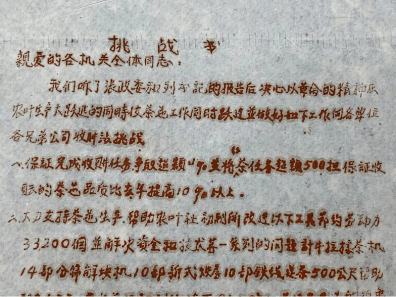 挑战书
亲爱的各机关全体同志:
我们听了张政委和刘书记的报告后决心以革命的精神在
农叶生产大跃进的同时使茶芼工作同时跃进并做好如下工作向各单位
各兄弟公司收购法挑战
一、保证完成收购任务争取超额 % 并将茶任务超额500担保证收
购的茶芼品质比去年提高10%以上。
二、大力支持茶芼生产,帮助农叶社 改进以下工具节约劳动力
33200個並解决资金和 一系列的问题計牛拉揉茶机
14部分筛解块机10部新式 10部铁线 500公尺帮助